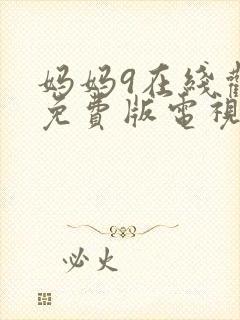 妈妈9在綫
免費版電視
必火